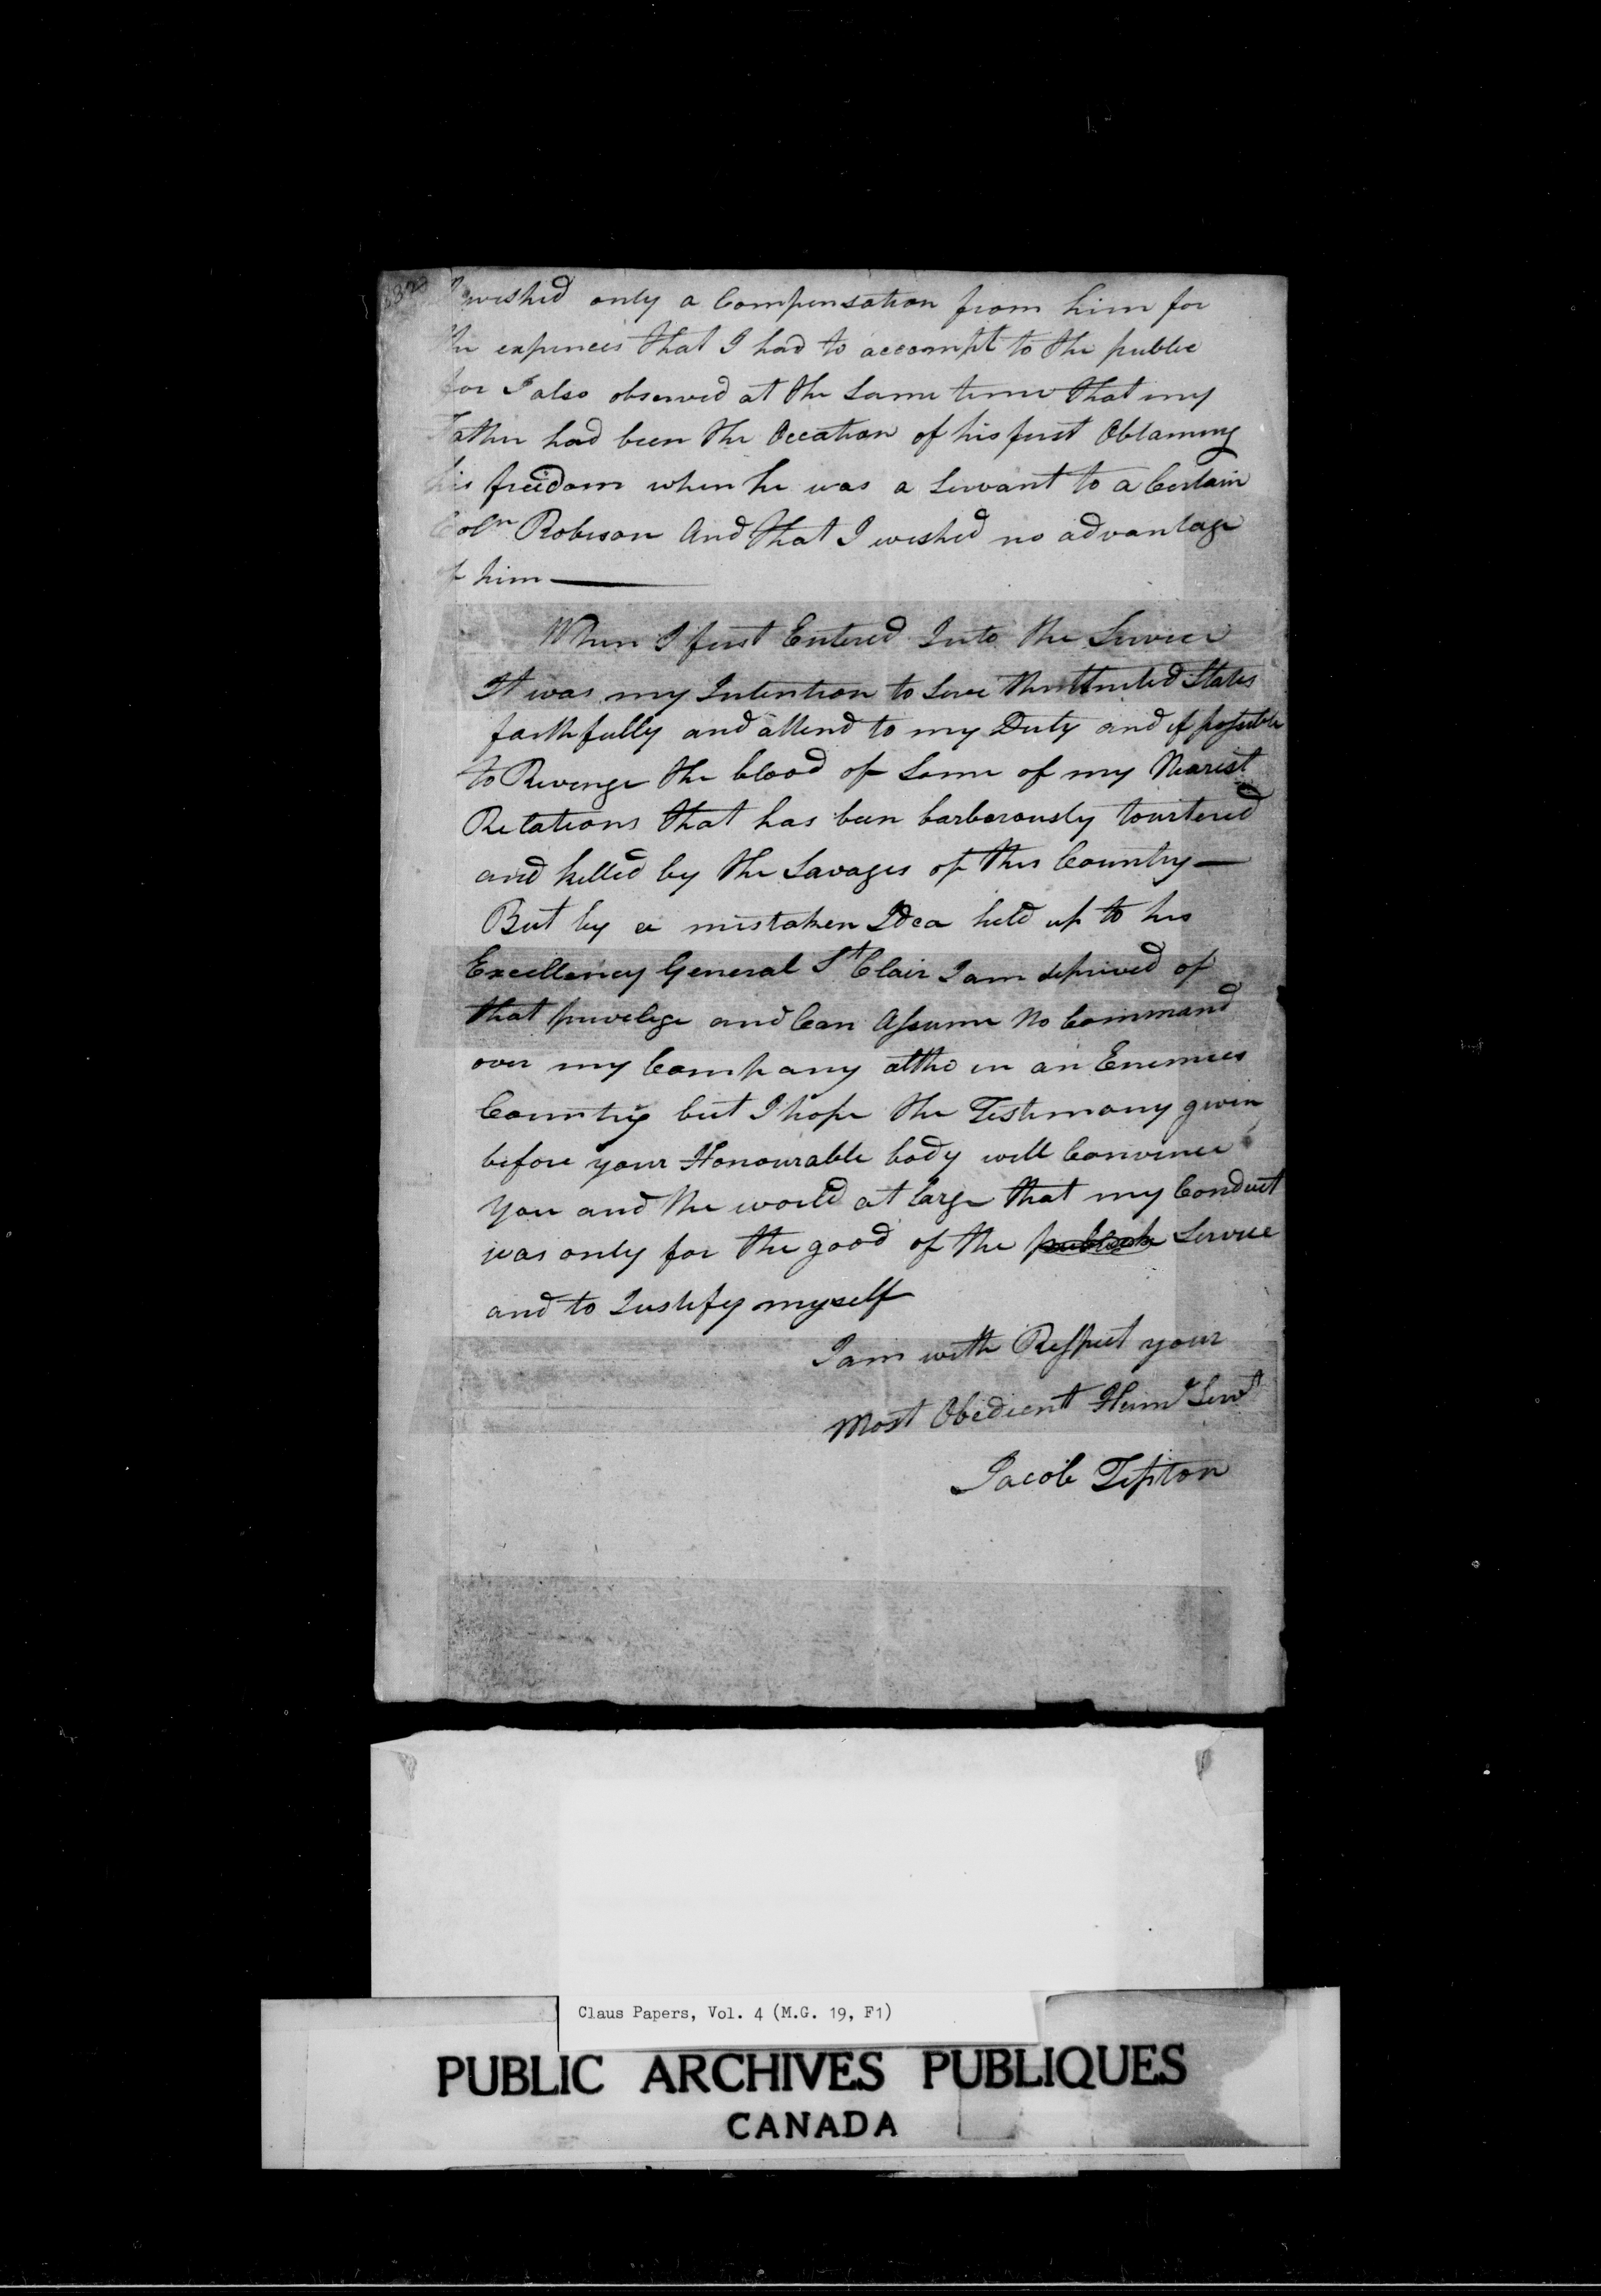 I wished only a Compensation from him for
the expences that I had to accompt to the public
for I also observed at the same time that my
Father had been the Occation of his first Obtaining
his freedom when he was a servant to a Certain
Coln Robison And that I wished no advantage
of him
When I first Entered Into the Service
It was my Intention to serve the United States
faithfully and attend to my Duty and if possible
to Revenge the blood of some of my Nearest
Relations that has been barborously tourtered
and killed by the Savages of this Country
But by a mistaken Idea held up to his
Excellency General St Clair I am deprived of
that privelige and Can Assume No Command
over my Company altho in an Enemies
Country but I hope the Testimony given
before your Honourable body will Convince
you and the world at large that my Conduct
was only for the good of the Service
and to Justify myself
I am with Respect your
Most Obedient Humr Servt
Jacob Tipton
Claus Papers, Vol. 4 (M.G. 19, F1)
PUBLIC ARCHIVES PUBLIQUES
CANADA